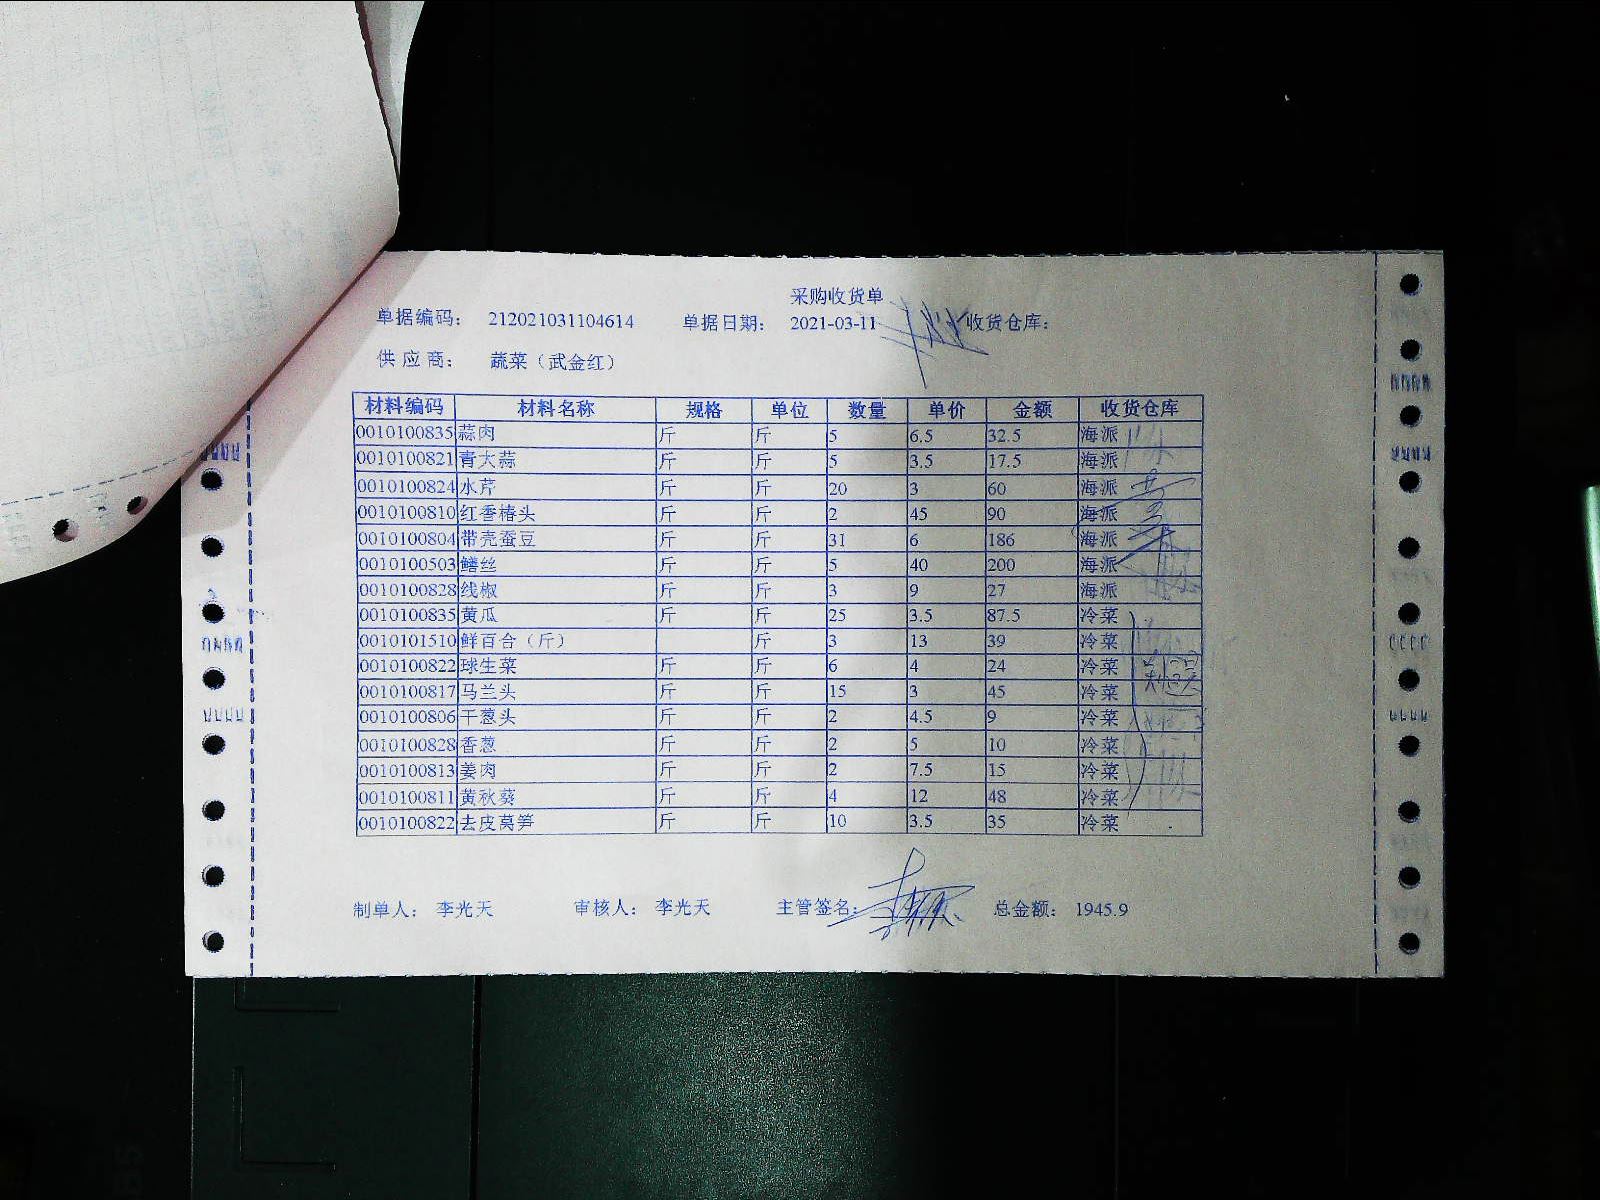 采购收货单
单据编码： 212021031104614 单据日期： 2021-03-11 收货仓库：
供 应 商： 蔬菜（武金红）
材料编码 材料名称 规格 单位 数量 单价 金额 收货仓库
0010100835 蒜肉 斤 斤 5 6.5 32.5 海派
0010100821 青大蒜 斤 斤 5 3.5 17.5 海派
0010100824 水芹 斤 斤 20 3 60 海派
0010100810 红香椿头 斤 斤 2 45 90 海派
0010100804 带壳蚕豆 斤 斤 31 6 186 海派
0010100503 鳝丝 斤 斤 5 40 200 海派
0010100828 线椒 斤 斤 3 9 27 海派
0010100835 黄瓜 斤 斤 25 3.5 87.5 冷菜
0010101510 鲜百合（斤） 斤 3 13 39 冷菜
0010100822 球生菜 斤 斤 6 4 24 冷菜
0010100817 马兰头 斤 斤 15 3 45 冷菜
0010100806 干葱头 斤 斤 2 4.5 9 冷菜
0010100828 香葱 斤 斤 2 5 10 冷菜
0010100813 姜肉 斤 斤 2 7.5 15 冷菜
0010100811 黄秋葵 斤 斤 4 12 48 冷菜
0010100822 去皮莴笋 斤 斤 10 3.5 35 冷菜
制单人： 李光天 审核人： 李光天 主管签名： 总金额： 1945.9